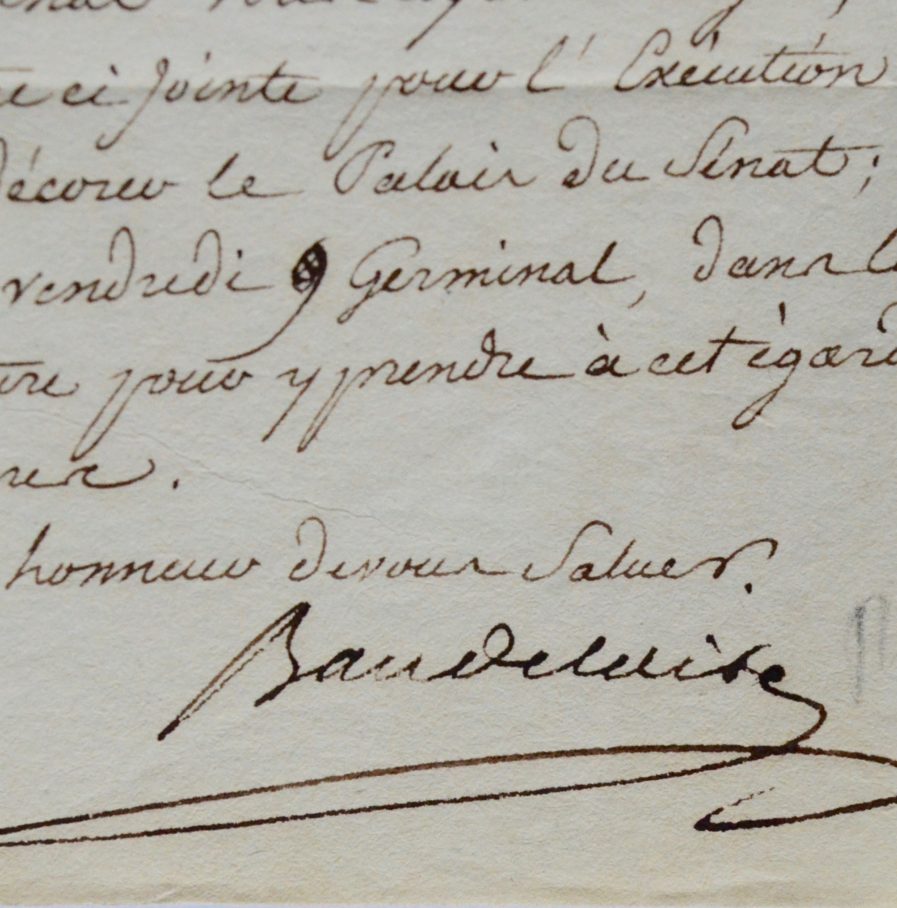 ci jointe pour l'Exécution
décorer le Palais du Sénat;
vendredi 9 Germinal, dans l
pour y prendre à cet égard
honneur de vous Saluer.
Baudelaire